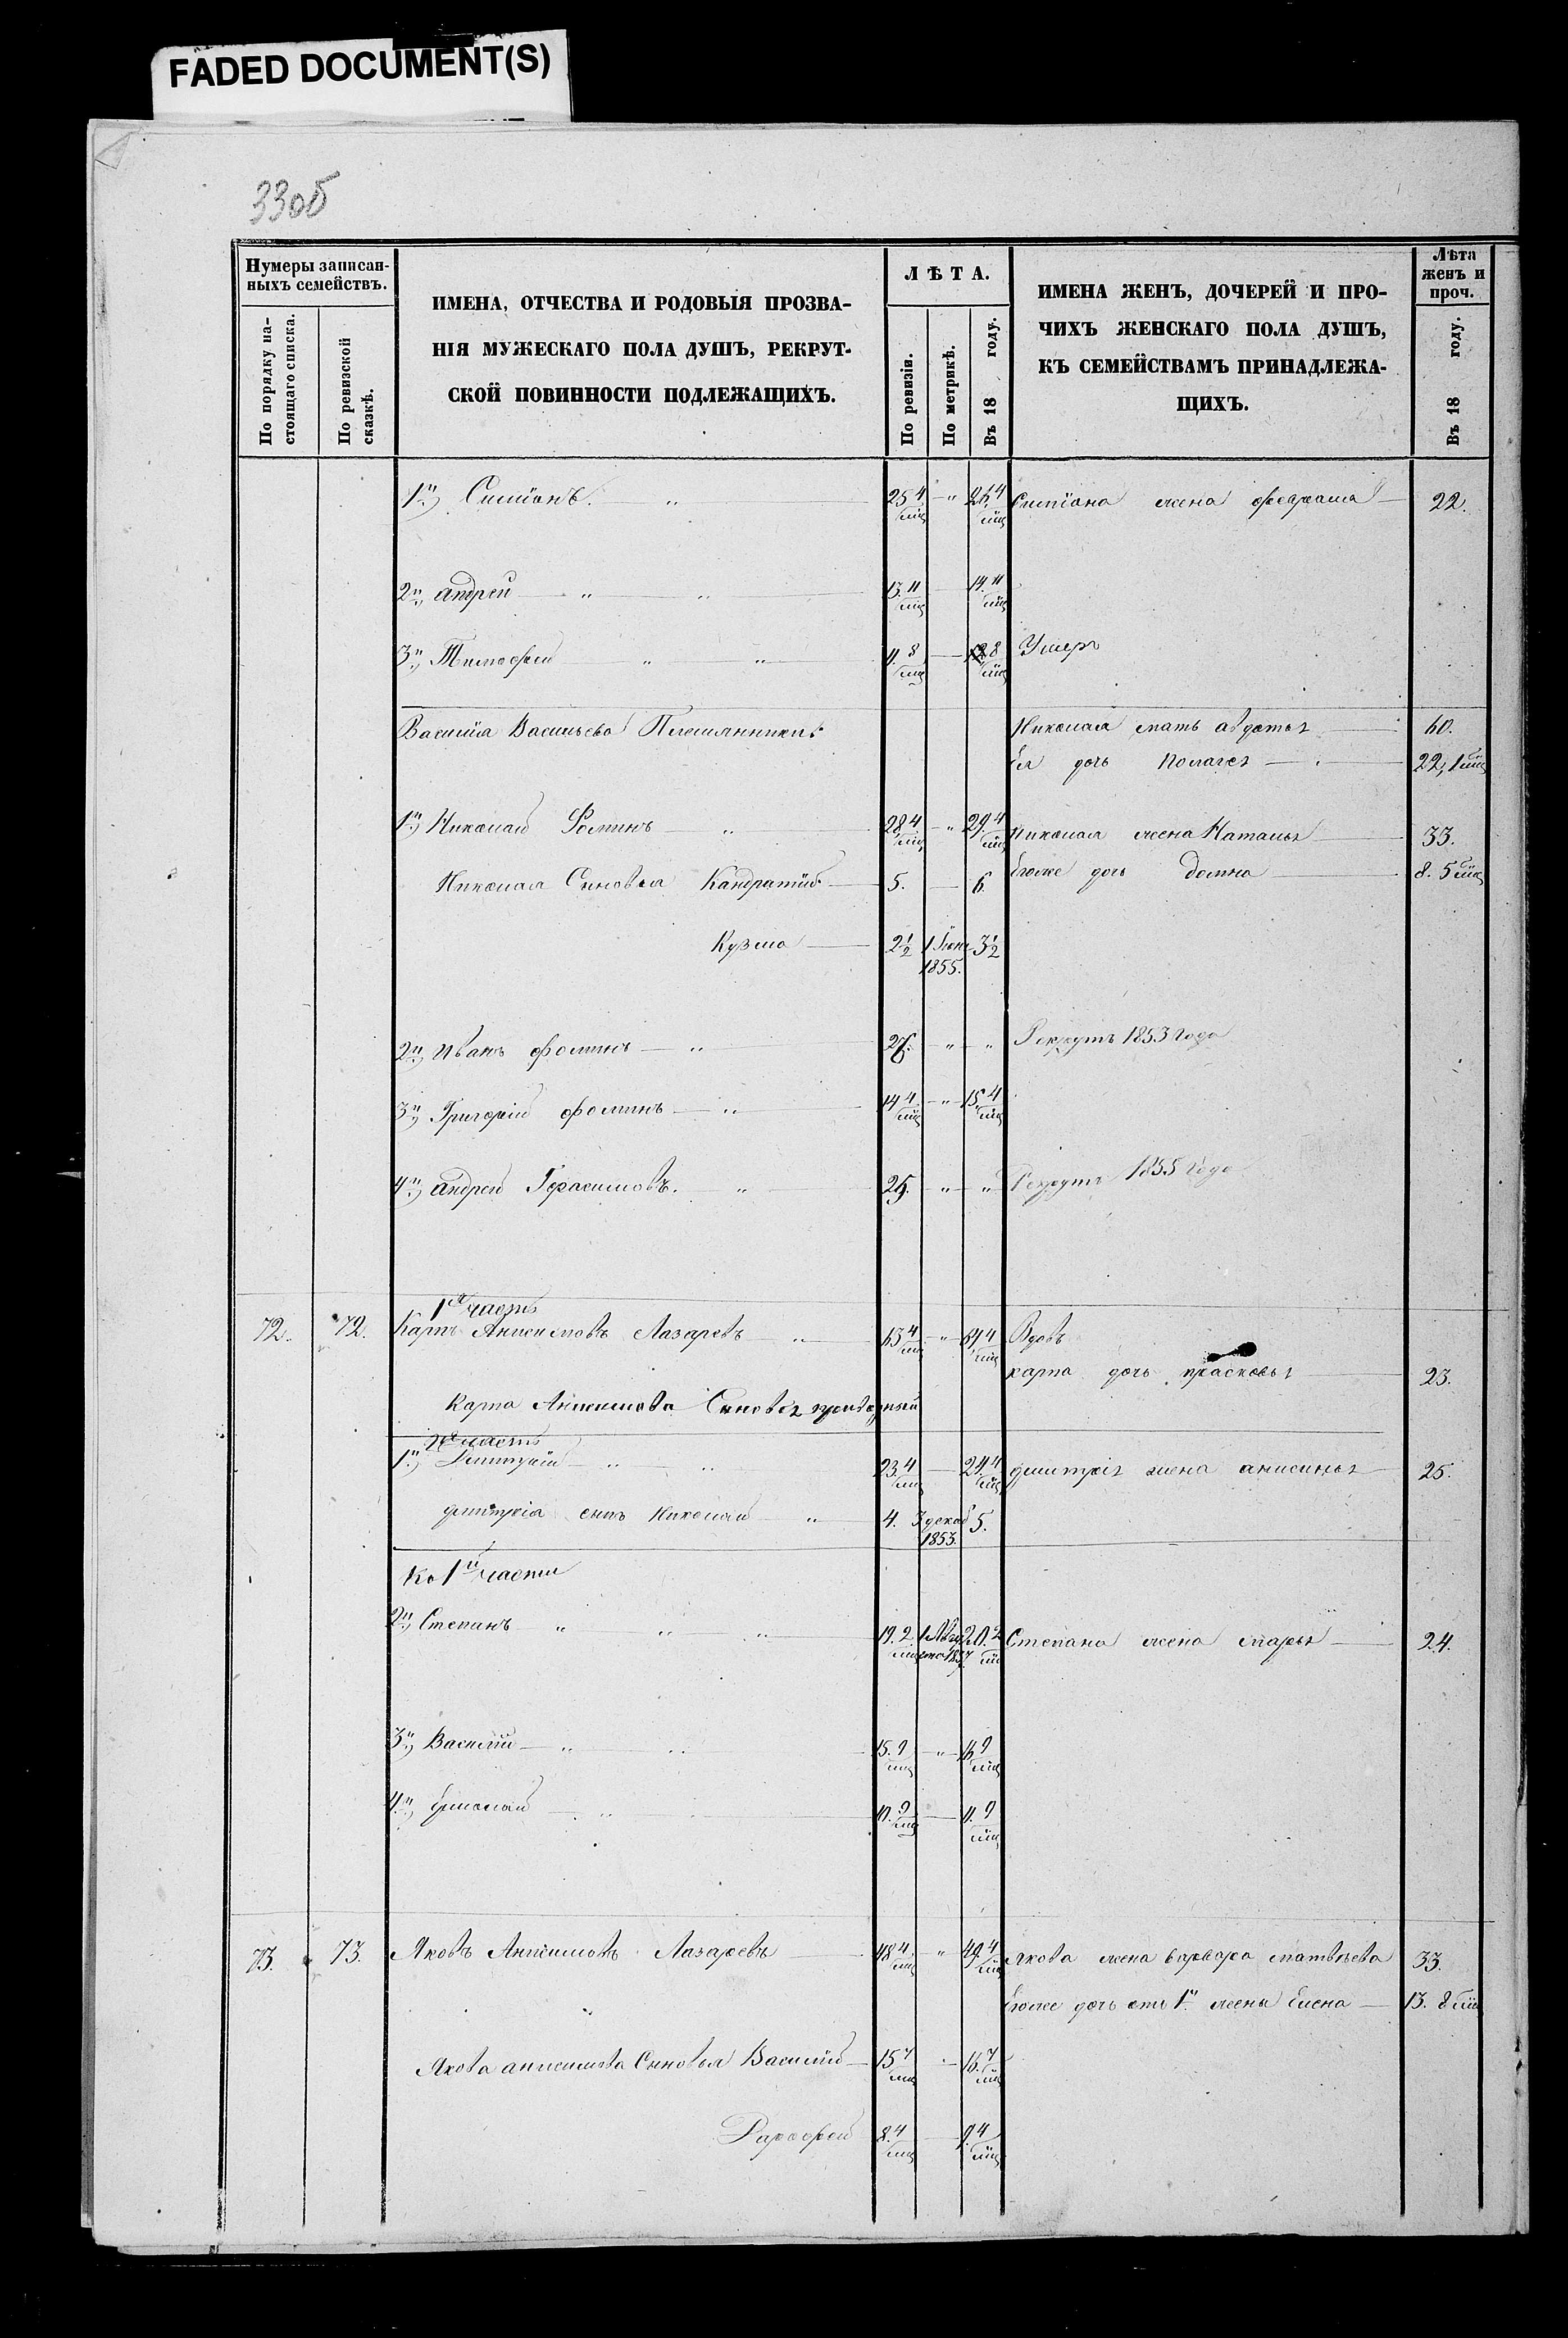 FADED DOCUMENT(S)
33об
Нумеры записан-
ныхъ семействъ.
По порядку на-
стоящаго списка.
По ревизской
сказкѣ.
ИМЕНА, ОТЧЕСТВА И РОДОВЫЯ ПРОЗВА-
НІЯ МУЖЕСКАГО ПОЛА ДУШЪ, РЕКРУТ-
СКОЙ ПОВИННОСТИ ПОДЛЕЖАЩИХЪ.
ЛѢТА.
По ревизіи.
По метрикѣ.
Въ 18 году.
ИМЕНА ЖЕНЪ, ДОЧЕРЕЙ И ПРО-
ЧИХЪ ЖЕНСКАГО ПОЛА ДУШЪ,
КЪ СЕМЕЙСТВАМЪ ПРИНАДЛЕЖА-
ЩИХЪ.
Лѣта
женъ и
проч.
Въ 18 году.
1й) " 25 4/мц " 4/мц жена 22.
2й, андрей " " 13. 11/мц 14. 11/мц
3й, Тимофей " " 11. 8/мц 8/мц Умеръ
Василія Васильева Племянники: Николая мать авдотья 60.
Ея дочь Полагея 22, 1 мц
1й) Николай Фоминъ " 28. 4/мц " 29. 4/мц Николая жена Наталья 33.
Николая Сыновья Кандратій 5. 6. Еюже дочь Домна 8. 5 мц
Кузма 2 1/2 1 Іюн 1855. 3 1/2
2й, Иванъ фоминъ " " " Рекрутъ 1853 Года
3й, Григорій фоминъ " 14 4/мц " 15. 4/мц
4й, андрей Герасимовъ. " 25. " " Рекрутъ 1855 Года
1я часть
72. 72. Карпъ Анисимовъ Лазаревъ " 63 4/мц " 64 4/мц Вдовъ
карпа дочь прасковья 23.
Карпа Анисимова Сыновья
2я часть
1й, Дмитрій " " 23. 4/мц 24 4/мц дмитрія жена анисинья 25.
дмитрія сынъ Николай " 4. 3 декаб 1853. 5.
Ко 1й части
2й, Степанъ " " " 19. 2/мц 20. 2/мц Степана жена марья 24.
3й, Василій " " 15. 9/мц " 16. 9/мц
4й, " 10. 9/мц 11. 9/мц
73. 73. Яковъ Анисимовъ Лазаревъ 48 4/мц " 49. 4/мц Якова жена варвара матвѣева 33.
Еюже дочь отъ 1й жены Елена 13. 8 мц
Якова анисимова Сыновья Василій 15 7/мц 16. 7/мц
8. 4/мц 9. 4/мц